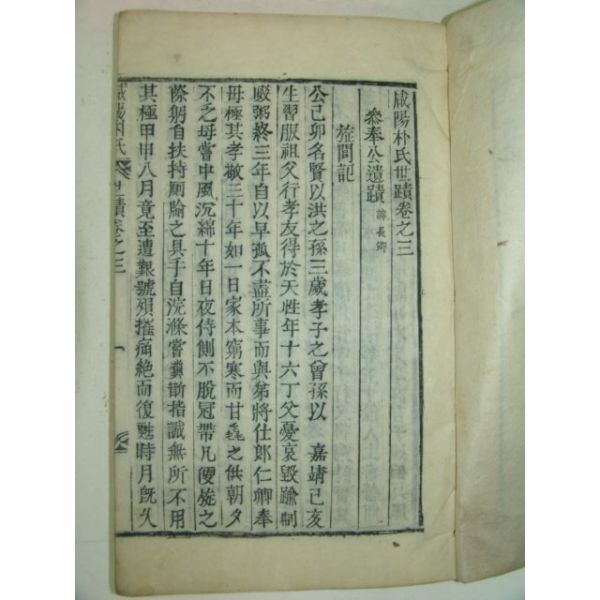 咸陽朴氏世蹟卷之三
參奉公遺蹟 諱長卿
旌閭記
公己卯名賢以洪之孫三歲孝子之曾孫以 嘉靖己亥
生習服祖父行孝友得於天性年十六丁父憂哀毀踰制
啜粥終三年自以早孤不盡所事而與弟將仕郎仁卿奉
母極其孝敬三十年如一日家本窮寒而甘毳之供朝夕
不乏母嘗中風沉綿十年日夜侍側不脫冠帶凡便旋之
際躬自扶持厠牏之具手自浣滌嘗糞斷指誠無所不用
其極甲申八月竟至遭艱號殞擗痛絶而復甦時月旣久
咸陽朴氏世蹟卷之三